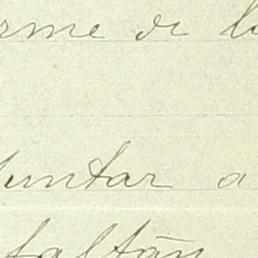 rme de l
juntar a
faltan